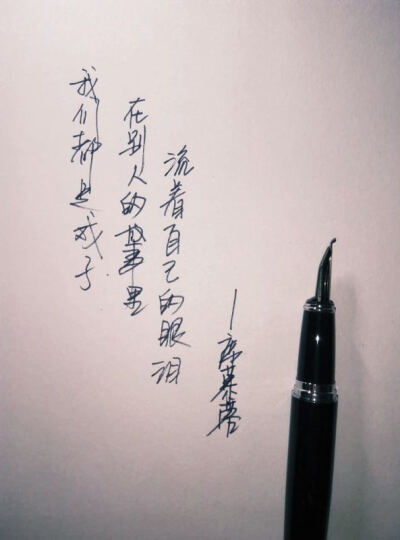 我们都是戏子
在别人的故事里
流着自己的眼泪
—席慕蓉